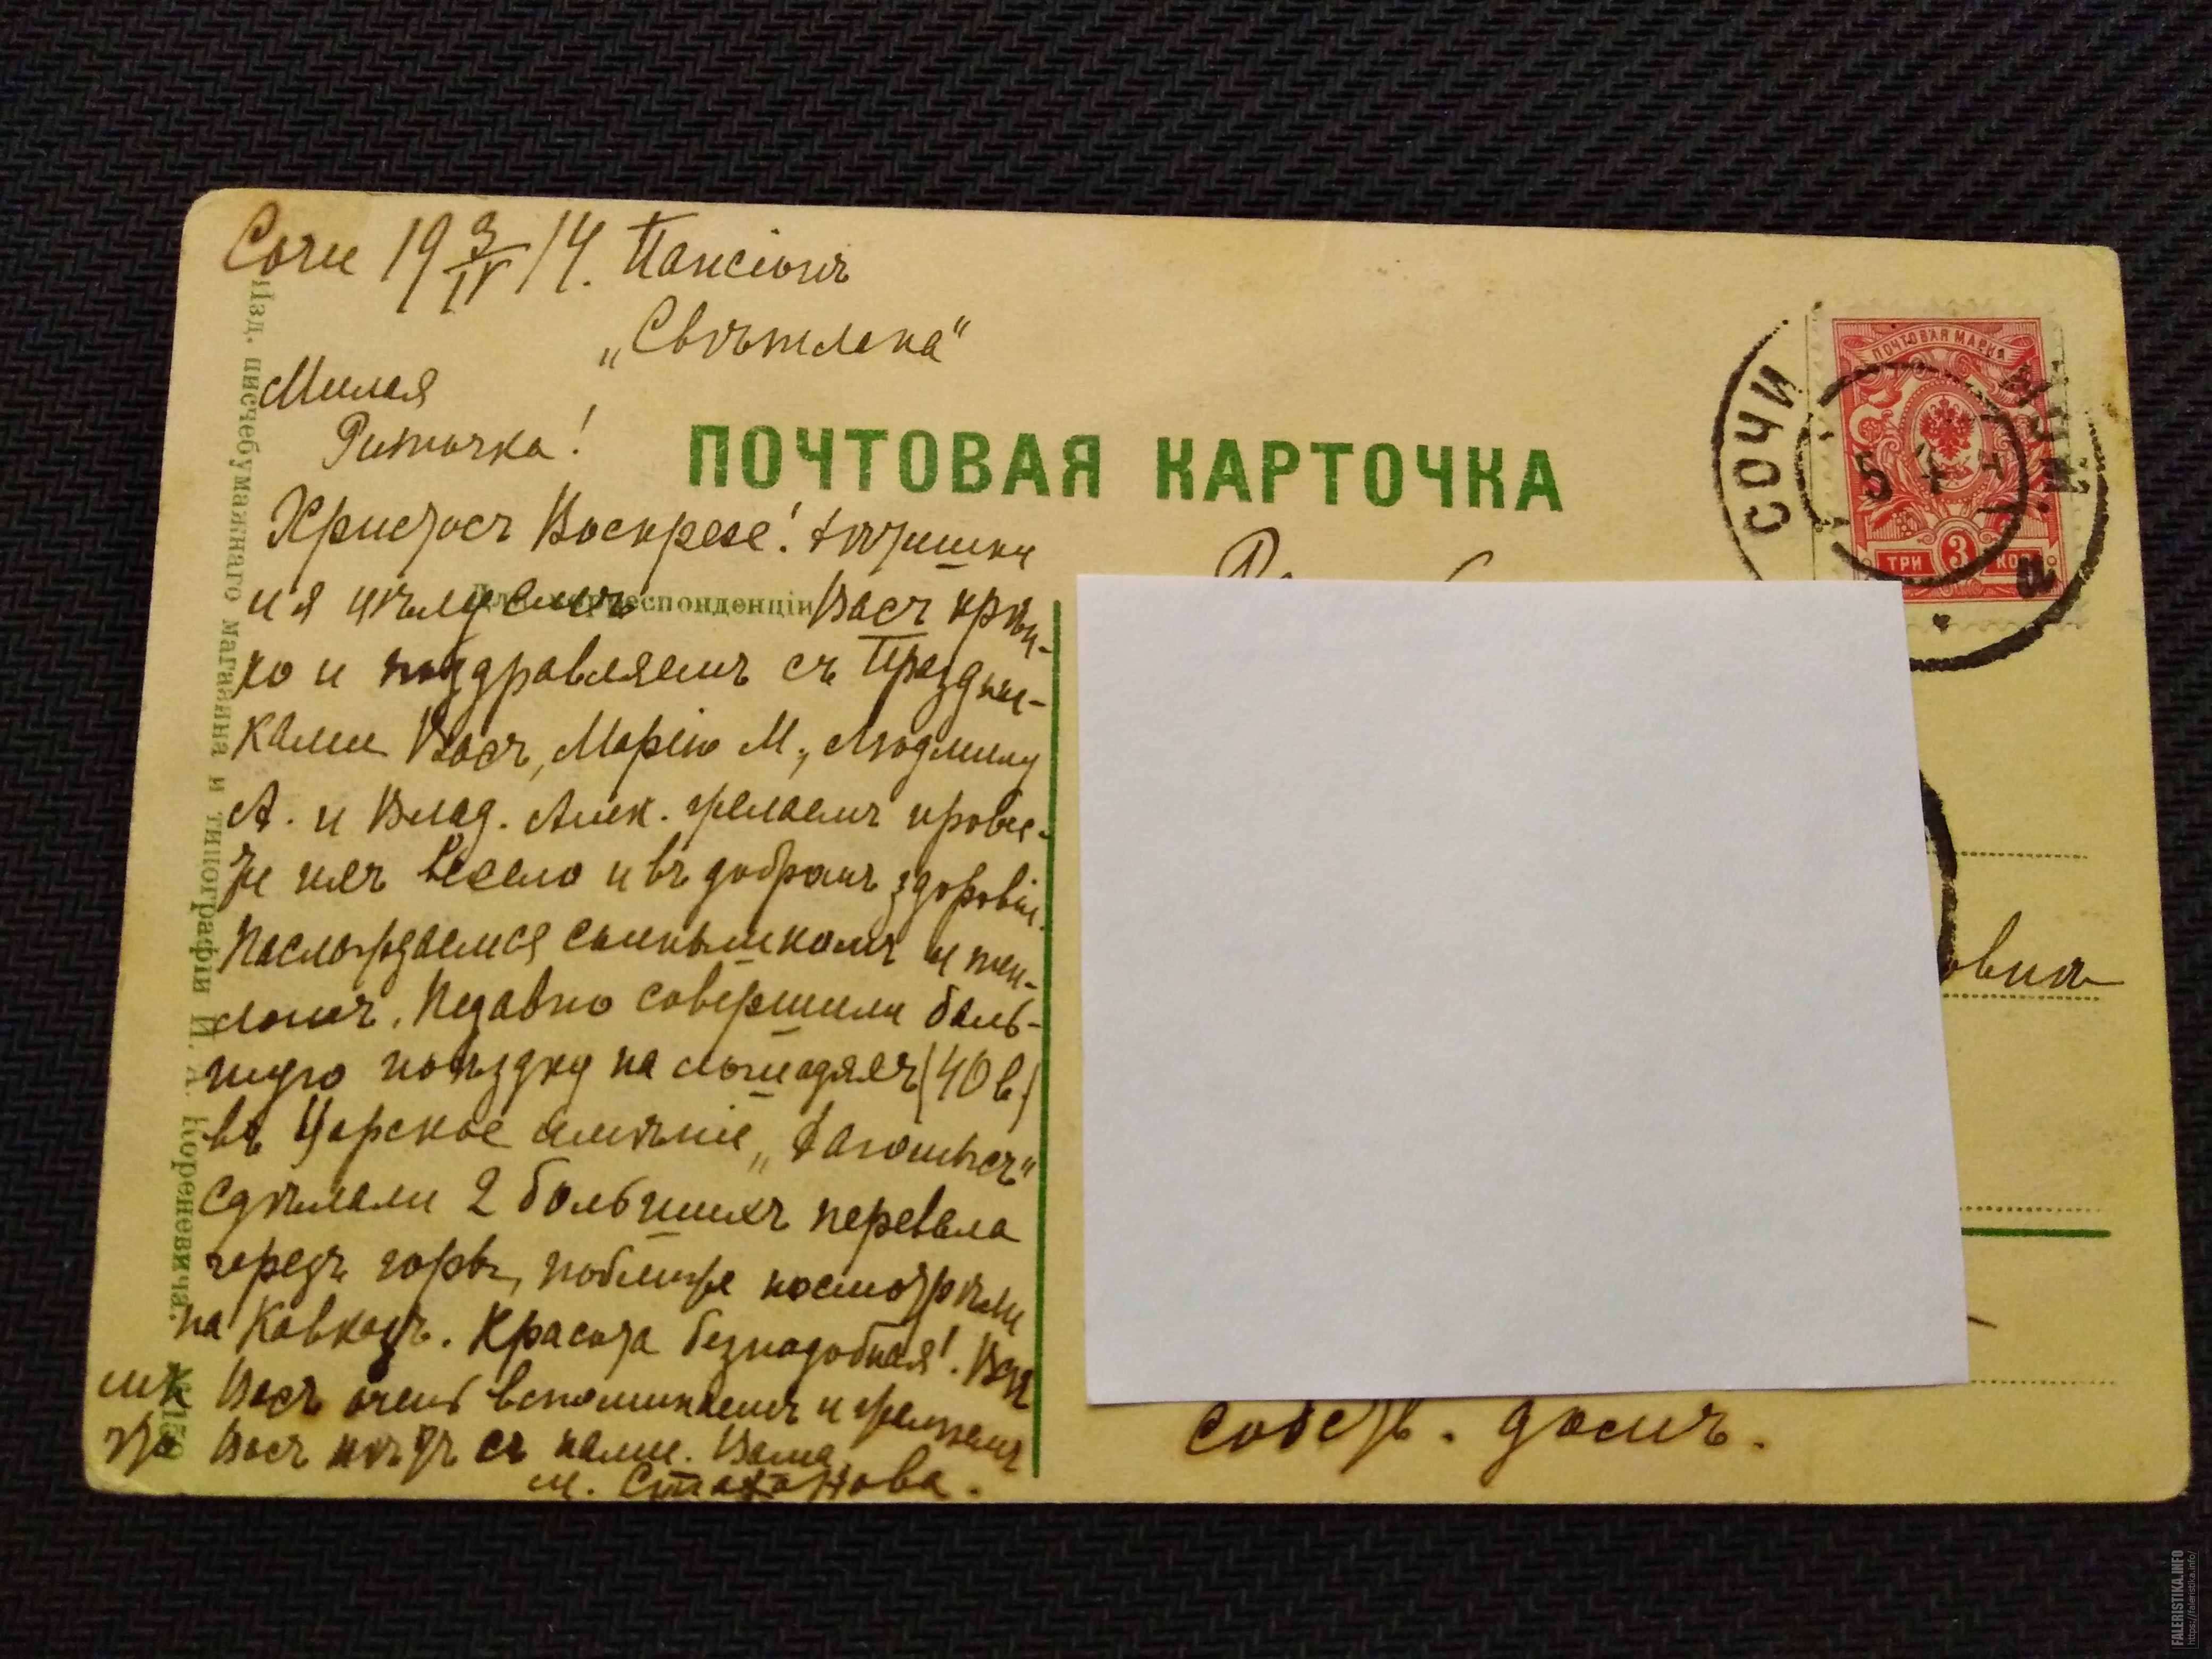 Сочи 19 3/IV 14. Пансіонъ
„Свѣтлана“
Милая
Риточка!
Христосъ Воскресе! Дѣтишки
и я цѣлуемъ Васъ крѣп-
ко и поздравляемъ съ Праздни-
ками Васъ, Марію М., Людмилу
А. и Влад. Алек. желаемъ прове-
сти ихъ весело и въ добромъ здоровіи.
Наслаждаемся солнышкомъ и теп-
ломъ. Недавно совершили боль-
шую поѣздку на лошадяхъ (40 в.)
въ Царское имѣніе „Дагомысъ“
сдѣлали 2 большихъ перевала
черезъ горы, поближе посмотрѣли
на Кавказъ. Красота безподобная!. Все
Васъ очень вспоминаемъ и жалѣемъ
что Васъ нѣтъ съ нами. Ваша
М. Стаханова.
ПОЧТОВАЯ КАРТОЧКА
Для корреспонденціи
Изд. писчебумажнаго магазина и типографіи И. А. Кореневича.
ПОЧТОВАЯ МАРКА
ТРИ 3 КОП
СОЧИ
5 4
овнѣ
собств. домъ.
FALERISTIKA.INFO
https://faleristika.info/